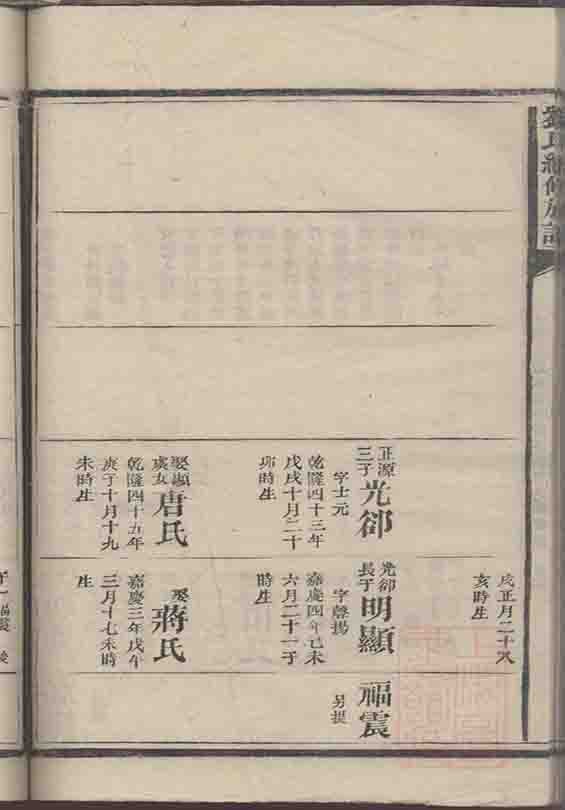 氏總修族譜
戌正月二十八
亥時生
正源
三子
光郤
字士元
乾隆四十三年
戊戌十月二十
卯時生
娶顯
虞女
唐氏
乾隆四十五年
庚子十月十九
未時生
光郤
長子
明顯
字聲揚
嘉慶四年己未
六月二十一子
時生
娶
蔣氏
嘉慶三年戊午
三月十七未時
生
福震
另提